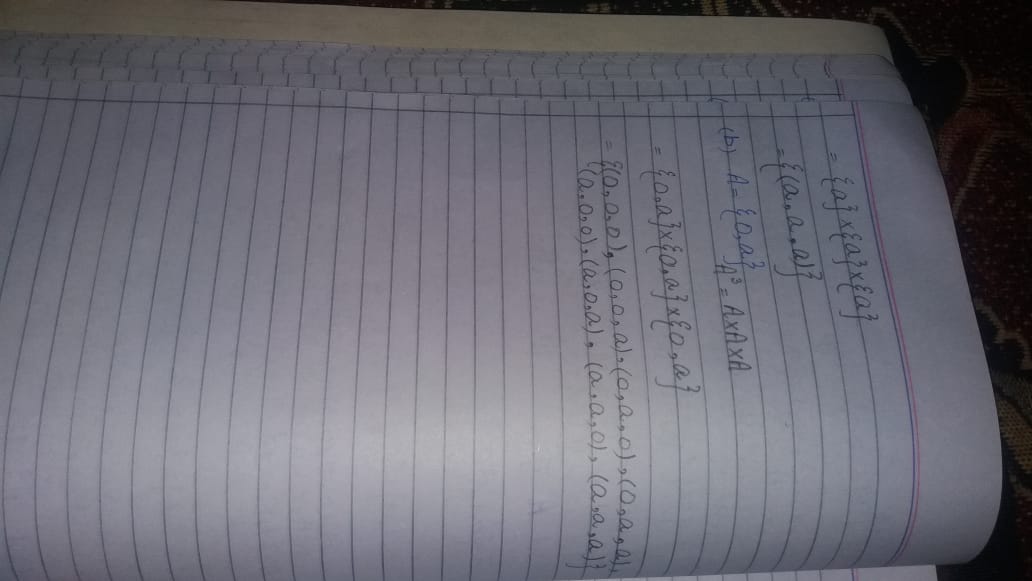 = {a}×{a}×{a}
= {(a,a,a)}
(b) A = {0,a} A³ = A×A×A
= {0,a}×{0,a}×{0,a}
= {(0,0,0), (0,0,a), (0,a,0), (0,a,a),
(a,0,0), (a,0,a), (a,a,0), (a,a,a)}